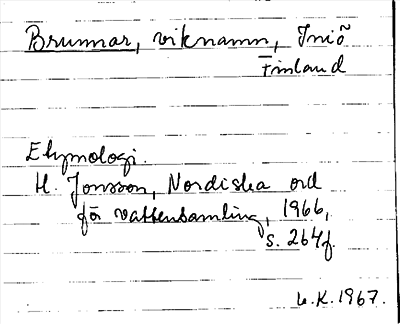 Brunnar, viknamn, Iniö
Finland
Etymologi.
H. Jonsson, Nordiska ord
för vattensamling, 1966,
s. 264f.
U.K. 1967.